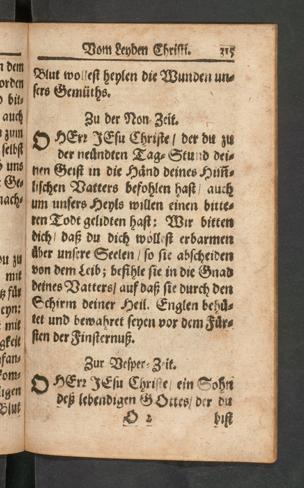 Vom Leyden Christi. 215
Blut wollest heylen die Wunden un-
sers Gemüths.
Zu der Non-Zeit.
O HErr JEsu Christe/ der du zu
der neündten Tag-Stund dei-
nen Geist in die Händ deines Him̃-
lischen Vatters befohlen hast/ auch
um unsers Heyls willen einen bitte-
ren Todt gelidten hast: Wir bitten
dich/ daß du dich wöllest erbarmen
über unsere Seelen/ so sie abscheiden
von dem Leib; befihle sie in die Gnad
deines Vatters/ auf daß sie durch den
Schirm deiner Heil. Englen behü-
tet und bewahret seyen vor dem Für-
sten der Finsternuß.
Zur Vesper-Zeit.
O HErr JEsu Christe/ ein Sohn
deß lebendigen GOttes/ der du
O 2 bist